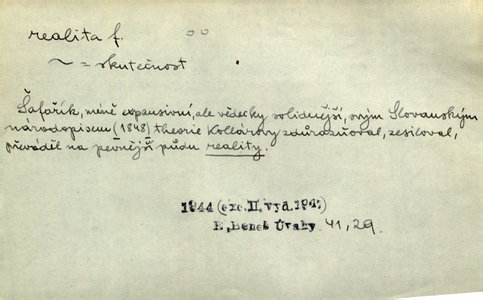 realita f.
~ = skutečnost
Šafařík, méně expansivní, ale vědecky solidnější, svým Slovanským
národopisem (1848) theorie Kollárovy zdůrazňoval, zesiloval,
převáděl na pevnější půdu reality.
1944 (exc. II. vyd. 1947)
E. Beneš Úvahy 41, 29.